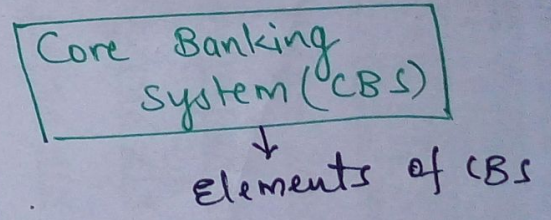 Core Banking
System (CBS)
Elements of CBS